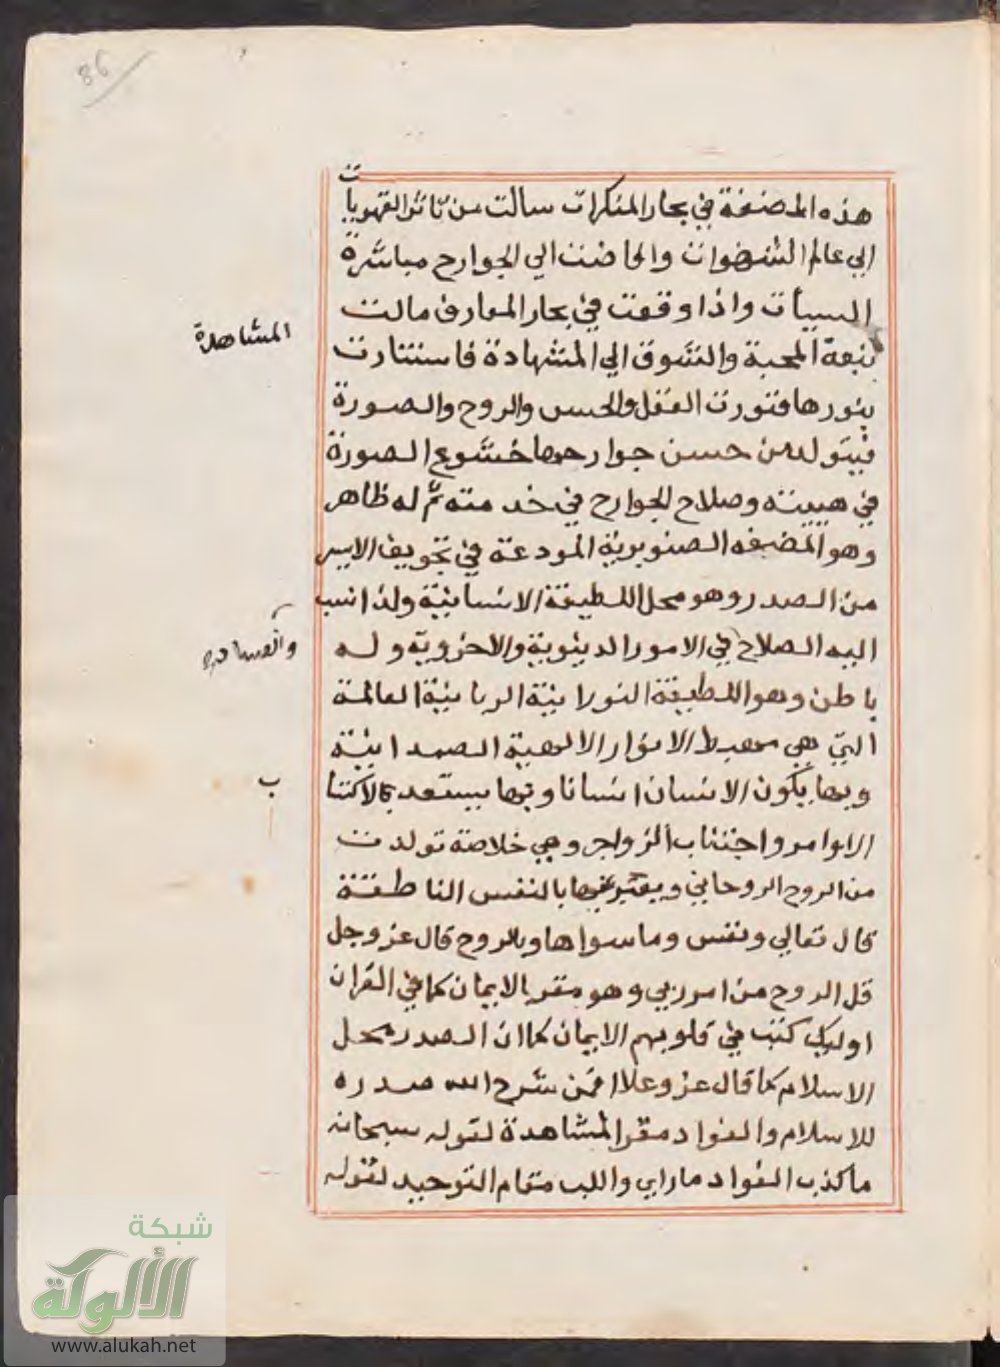 86
هذه المضغة في بحار المنكرات سالت من تاثر القهويات
الي عالم الشهوات والحاضت الي الجوارح مباشرة
السيأت واذا وقعت في بحار المعارف مالت
بنعة المحبة والتشوق الي المشهادة فاستنارت
المشاهدة
بنورها فتورت العقل والحس والروح والصورة
فيتولد من حسن جوارحها خشوع الصورة
في هيبته وصلاح الجوارح في خدمته ثم له ظاهر
وهو المضغه الصنوبرية المودعة في تجويف الايسر
من الصدر وهو محل اللطيفة الانسانية ولذا نسب
اليه الصلاح في الامور الدينوية والاخروية وله
باطن وهو اللطيفة النورانية الربانية العالمة
التي هي مهبط الانوار الالهية الصمدانية
وبها يكون الانسان انسانا وبها يستعد بالاكتسا
ب
الاوامر واجتناب الزواجر وهي خلاصة تولدت
من الروح الروحاني ويعبر عنها بالنفس الناطقة
قال تعالي ونفس وما سواها وبالروح قال عز وجل
قل الروح من امر ربي وهو مقر الايمان كما في القران
اوليك كتب في قلوبهم الايمان كما ان الصدر محل
الاسلام كما قال عز وعلا افمن شرح الله صدره
للاسلام والفواد مقر المشاهدة لقوله سبحانه
ما كذب الفواد ماراي واللب مقام التوحيد لقوله
شبكة
الألوكة
www.alukah.net